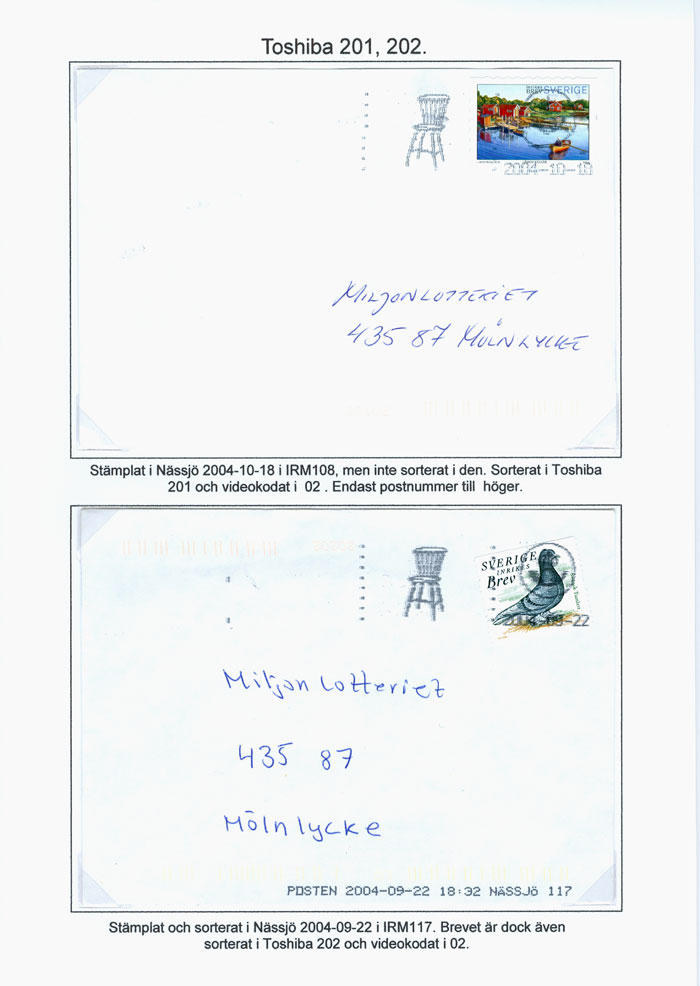 Toshiba 201, 202.
BREV SVERIGE
2004-10-18
MILJONLOTTERIET
435 87 MÖLNLYCKE
Stämplat i Nässjö 2004-10-18 i IRM108, men inte sorterat i den. Sorterat i Toshiba
201 och videokodat i 02 . Endast postnummer till höger.
20202
SVERIGE
INRIKES
Brev
2004-09-22
Miljonlotteriet
435 87
Mölnlycke
POSTEN 2004-09-22 18:32 NÄSSJÖ 117
Stämplat och sorterat i Nässjö 2004-09-22 i IRM117. Brevet är dock även
sorterat i Toshiba 202 och videokodat i 02.